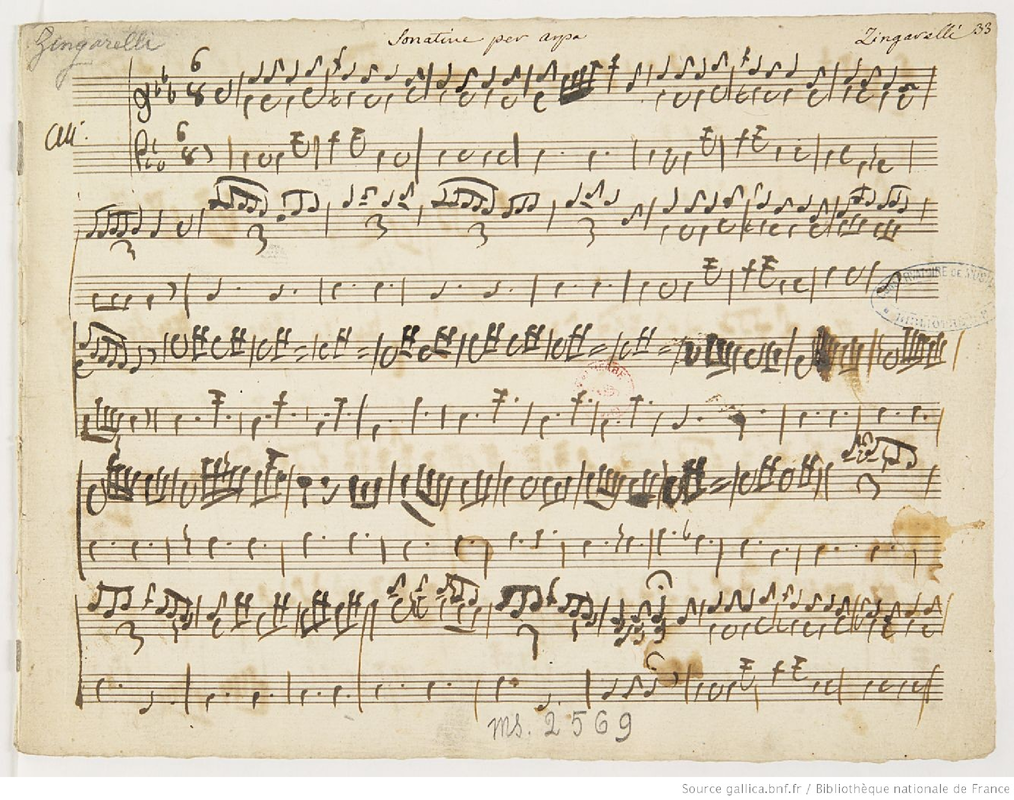 Zingarelli
Sonatine per arpa
Zingarelli 33
All.º
ms. 2569
Source gallica.bnf.fr / Bibliothèque nationale de France